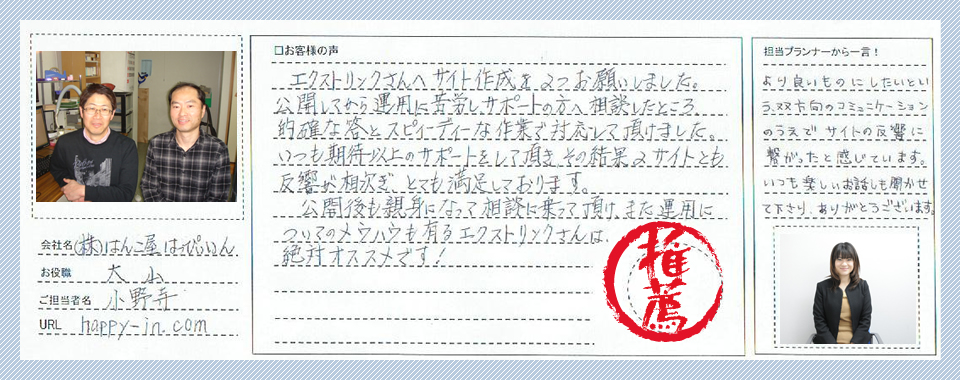 会社名 (株)はんこ屋はっぴいん
お役職 大山
ご担当者名 小野寺
URL happy-in.com
□お客様の声
エクストリンクさんへサイト作成を2つお願いしました。
公開してから運用に苦労しサポートの方へ相談したところ、
的確な答とスピィーディーな作業で対応して頂けました。
いつも期待以上のサポートをして頂き、その結果2サイトとも
反響が相次ぎ、とても満足しております。
公開後も親身になって相談に乗って頂け、また運用に
ついてのノウハウも有るエクストリンクさんは、
絶対オススメです!
推薦
担当プランナーから一言!
より良いものにしたいとい
う、双方向のコミュニケーション
のうえでサイトの反響に
繋がったと感じています。
いつも楽しいお話しも聞かせ
て下さり、ありがとうございます。